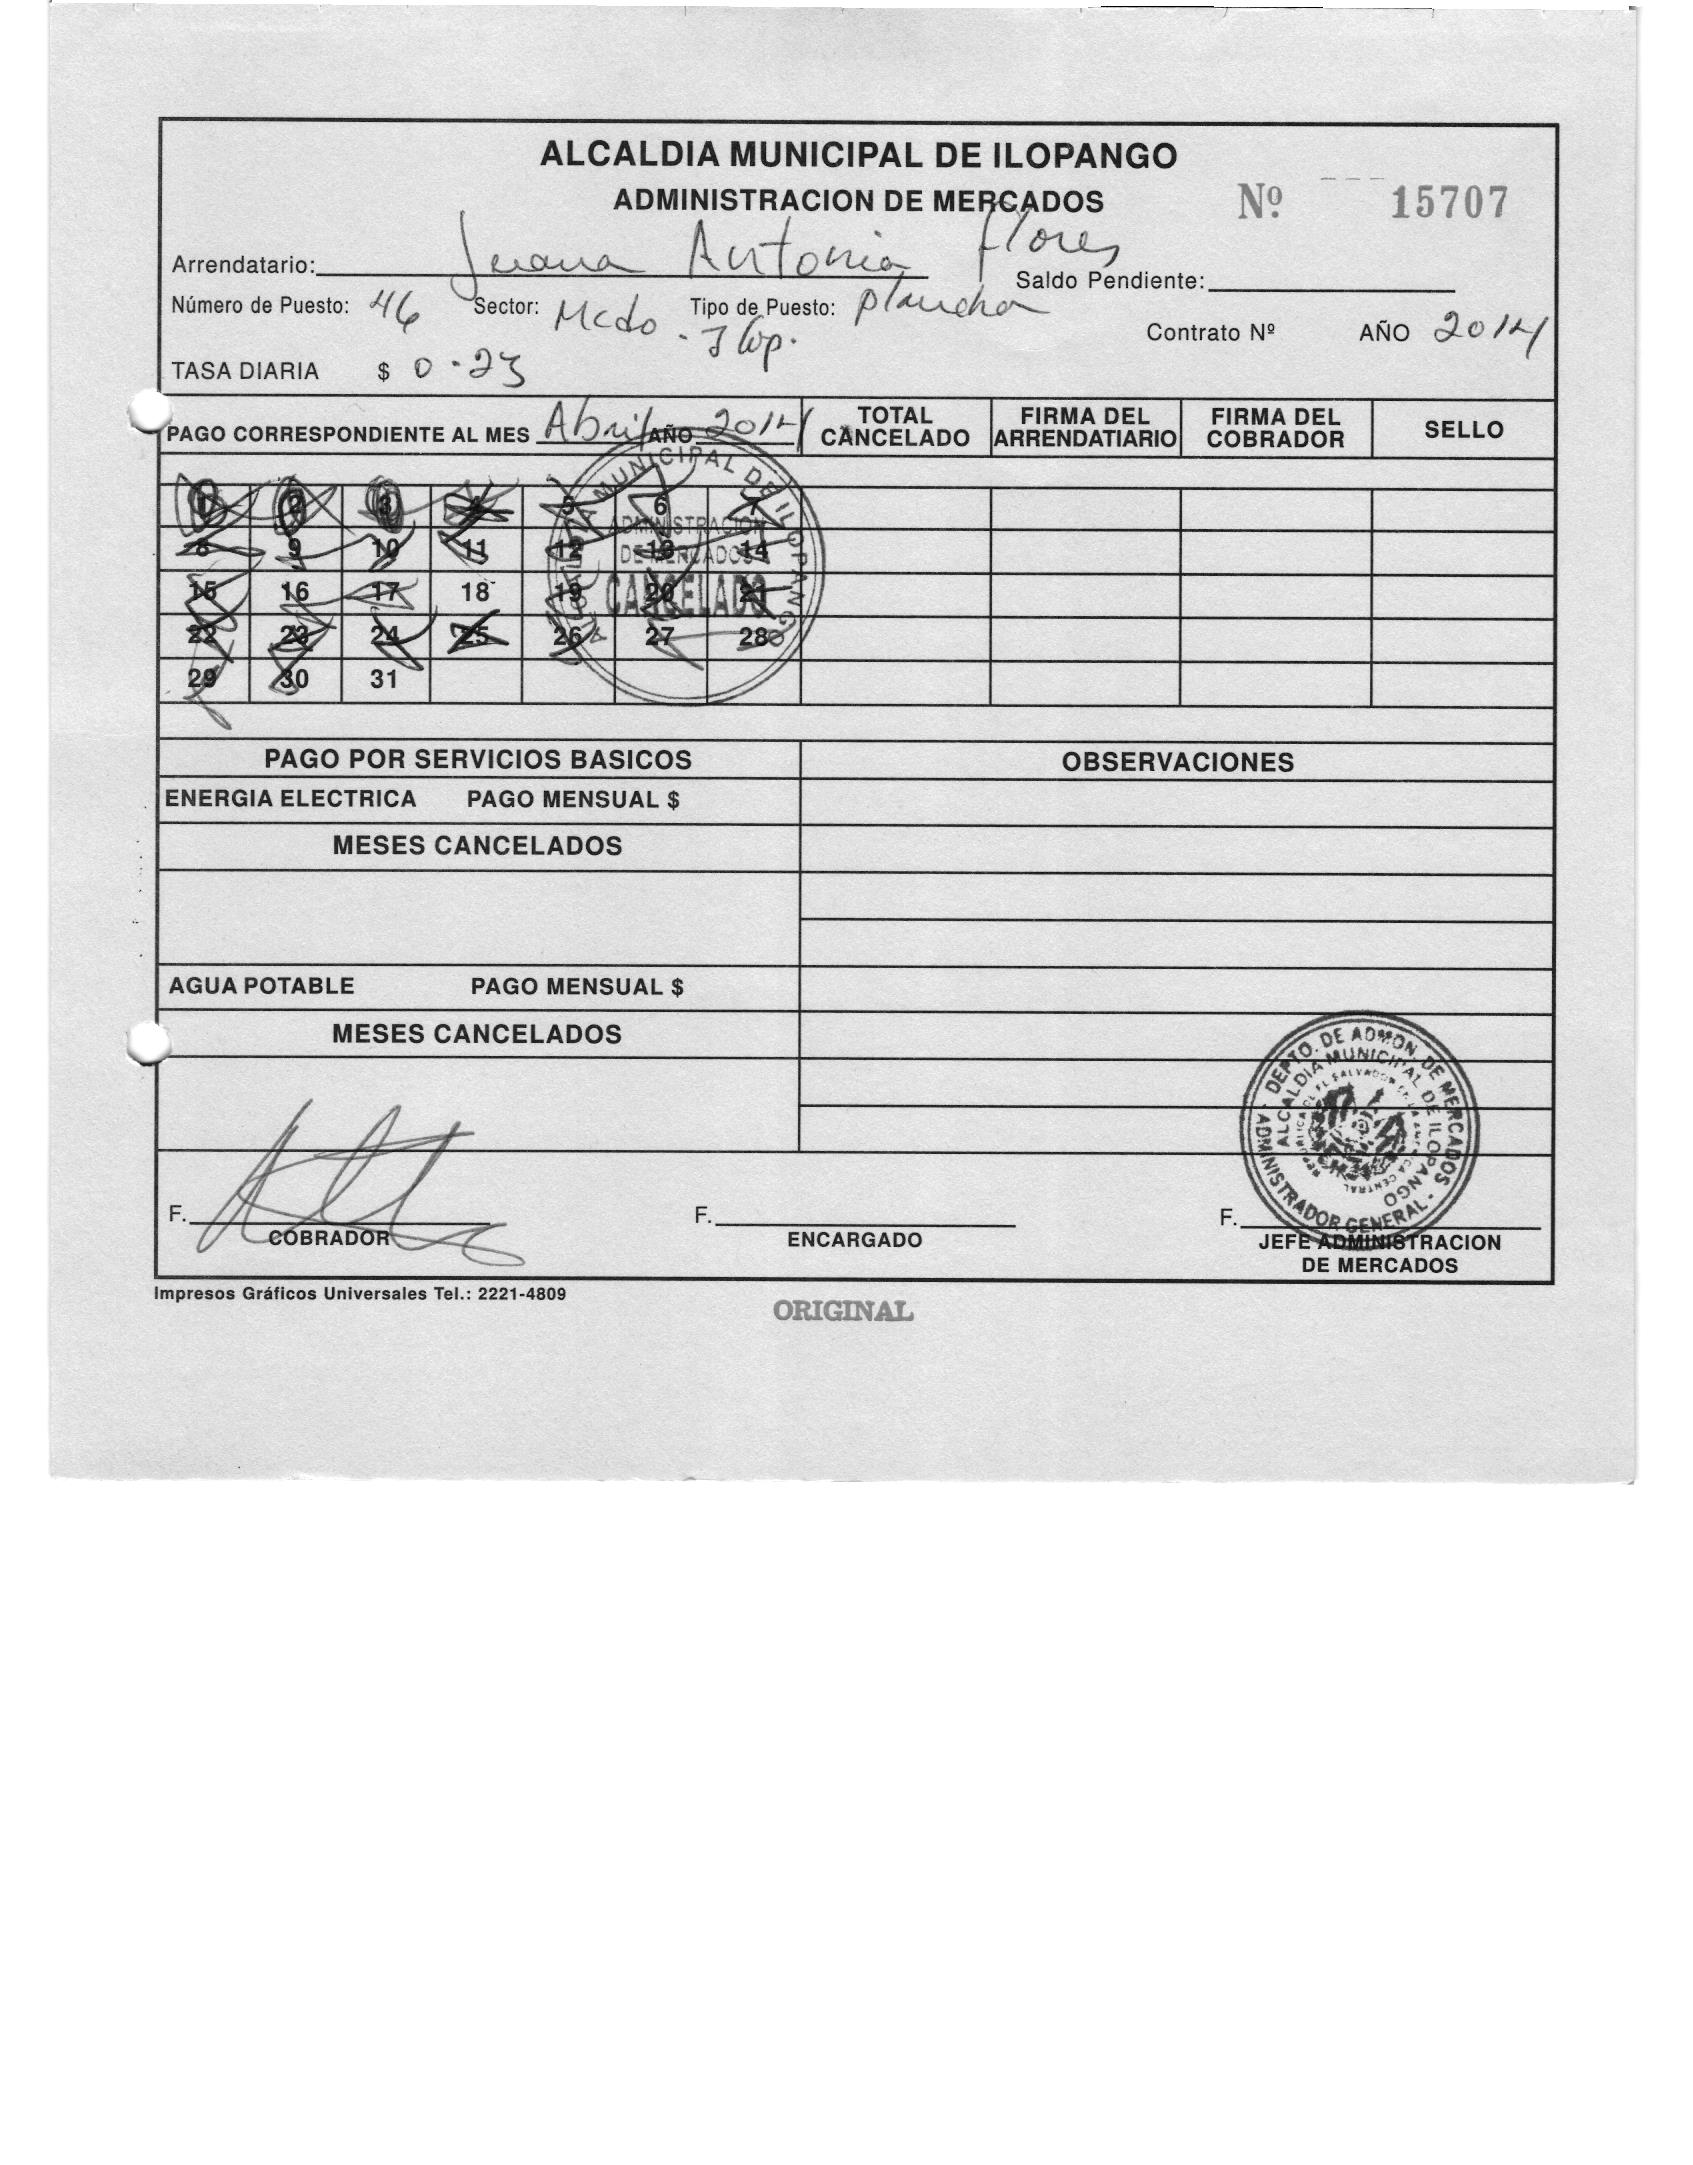 ALCALDIA MUNICIPAL DE ILOPANGO
ADMINISTRACION DE MERCADOS
Nº 15707
Arrendatario: Juana Antonia Flores
Saldo Pendiente:
Número de Puesto: 46 Sector: Mcdo. Ilop. Tipo de Puesto: plancha
Contrato Nº AÑO 2014
TASA DIARIA $ 0.23
PAGO CORRESPONDIENTE AL MES Abril AÑO 2014
TOTAL CANCELADO
FIRMA DEL ARRENDATIARIO
FIRMA DEL COBRADOR
SELLO
1 2 3 4 5 6 7
8 9 10 11 12 13 14
15 16 17 18 19 20 21
22 23 24 25 26 27 28
29 30 31
ALCALDIA MUNICIPAL DE ILOPANGO
ADMINISTRACION
DE MERCADOS
CANCELADO
PAGO POR SERVICIOS BASICOS
OBSERVACIONES
ENERGIA ELECTRICA PAGO MENSUAL $
MESES CANCELADOS
AGUA POTABLE PAGO MENSUAL $
MESES CANCELADOS
DEPTO. DE ADMON. DE MERCADOS - ADMINISTRADOR GENERAL -
ALCALDIA MUNICIPAL DE ILOPANGO
F.
COBRADOR
F.
ENCARGADO
F.
JEFE ADMINISTRACION
DE MERCADOS
Impresos Gráficos Universales Tel.: 2221-4809
ORIGINAL